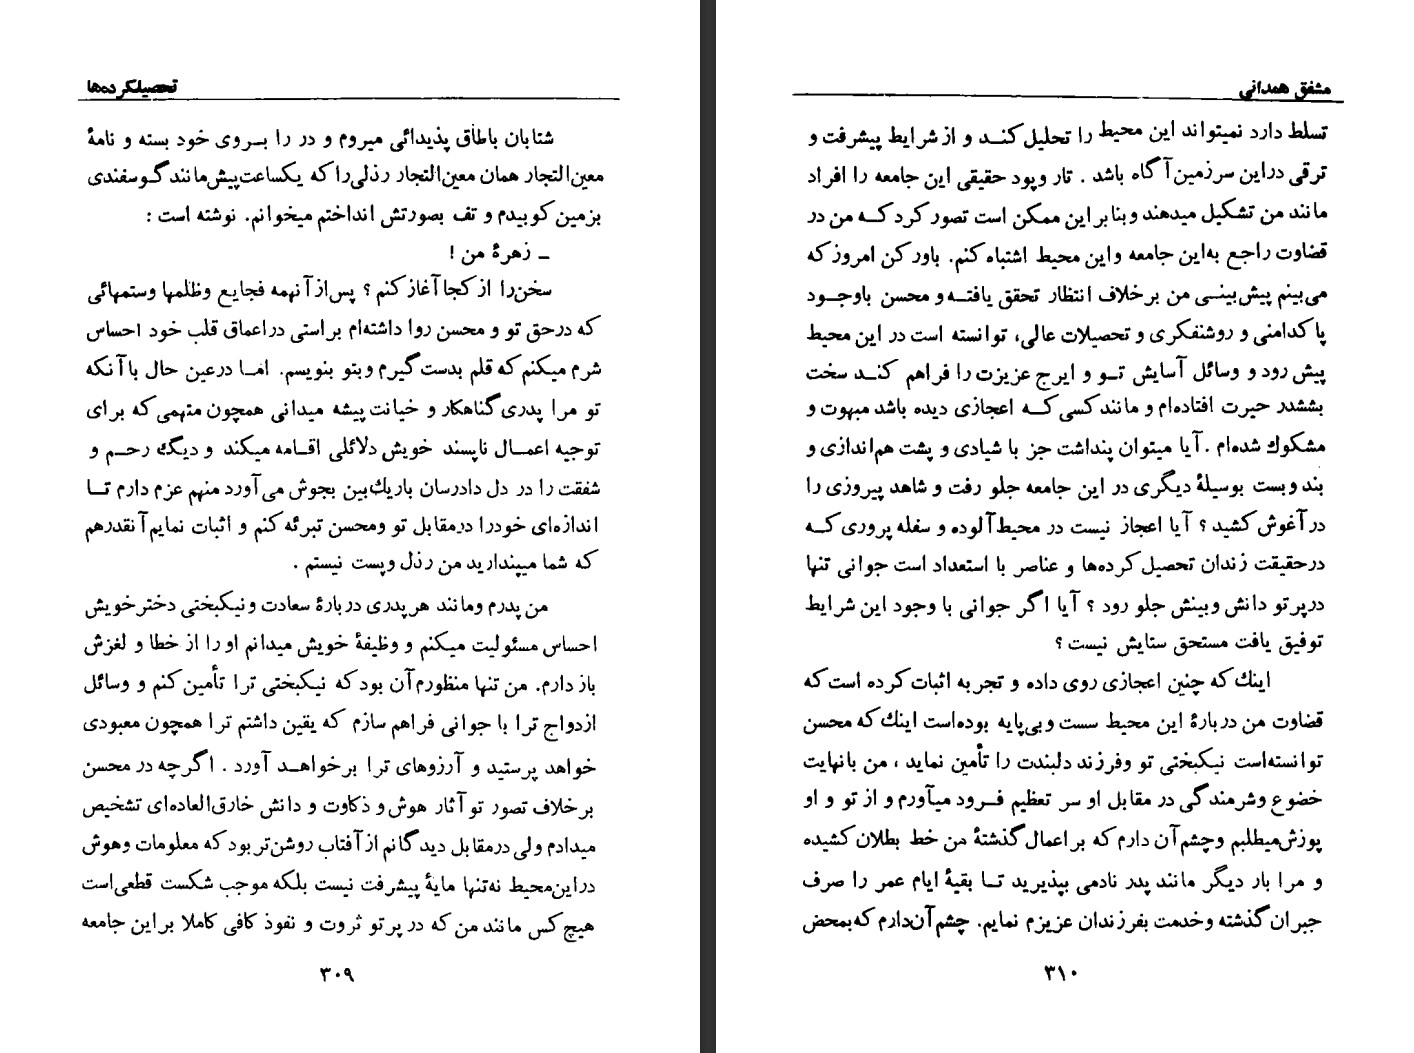 تحصیلکرده‌ها
شتابان باطاق پذیدائی میروم و در را بـروی خود بسته و نامهٔ
معین‌التجار همان معین‌التجار رذلی‌را که یکساعت‌پیش‌مانند گوسفندی
بزمین کوبیدم و تف بصورتش انداختم میخوانم. نوشته است :
ـ زهرهٔ من !
سخن‌را از کجا آغاز کنم ؟ پس‌از آنهمه فجایع وظلمها وستمهائی
که درحق تو و محسن روا داشته‌ام براستی دراعماق قلب خود احساس
شرم میکنم که قلم بدست گیرم وبتو بنویسم. امـا درعین حال باآنکه
تو مرا پدری گناهکار و خیانت پیشه میدانی همچون متهمی که برای
توجیه اعمـال ناپسند خویش دلائلی اقـامه میکند و دیگ رحـم و
شفقت را در دل دادرسان باریک‌بین بجوش می‌آورد منهم عزم دارم تـا
اندازه‌ای خودرا درمقابل تو ومحسن تبرئه کنم و اثبات نمایم آنقدرهم
که شما میپندارید من رذل وپست نیستم .
من پدرم ومانند هرپدری دربارهٔ سعادت ونیکبختی دخترخویش
احساس مسئولیت میکنم و وظیفهٔ خویش میدانم او را از خطا و لغزش
باز دارم. من تنها منظورم آن بود که نیکبختی ترا تأمین کنم و وسائل
ازدواج ترا با جوانی فراهم سازم که یقین داشتم ترا همچون معبودی
خواهد پرستید و آرزوهای ترا برخواهـد آورد . اگرچه در محسن
برخلاف تصور تو آثار هوش و ذکاوت و دانش خارق‌العاده‌ای تشخیص
میدادم ولی درمقابل دیدگانم از آفتاب روشن‌تر بود که معلومات وهوش
دراین‌محیط نه‌تنها مایهٔ پیشرفت نیست بلکه موجب شکست قطعی‌است
هیچ کس مانند من که در پرتو ثروت و نفوذ کافی کاملا براین جامعه
۳۰۹
مشفق همدانی
تسلط دارد نمیتواند این محیط را تحلیل کنـد و از شرایط پیشرفت و
ترقی دراین سرزمین آگاه باشد . تار وپود حقیقی این جامعه را افراد
مانند من تشکیل میدهند وبنابراین ممکن است تصور کرد کـه من در
قضاوت راجع به‌این جامعه واین محیط اشتباه کنم. باور کن امروز که
می‌بینم پیش‌بینـی من برخلاف انتظار تحقق یافتـه و محسن باوجـود
پاکدامنی و روشنفکری و تحصیلات عالی، توانسته است در این محیط
پیش رود و وسائل آسایش تـو و ایرج عزیزت را فراهم کنـد سخت
بششدر حیرت افتاده‌ام و مانند کسی کـه اعجازی دیده باشد مبهوت و
مشکوک شده‌ام . آیا میتوان پنداشت جز با شیادی و پشت هم‌اندازی و
بند وبست بوسیلهٔ دیگری در این جامعه جلو رفت و شاهد پیروزی را
در آغوش کشید ؟ آیا اعجاز نیست در محیط آلوده و سفله پروری کـه
درحقیقت زندان تحصیل کرده‌ها و عناصر با استعداد است جوانی تنها
درپرتو دانش وبینش جلو رود ؟ آیا اگر جوانی با وجود این شرایط
توفیق یافت مستحق ستایش نیست ؟
اینک که چنین اعجازی روی داده و تجربه اثبات کرده است که
قضاوت من دربارهٔ این محیط سست وبی‌پایه بوده‌است اینک که محسن
توانسته‌است نیکبختی تو وفرزند دلبندت را تأمین نماید ، من بانهایت
خضوع وشرمندگی در مقابل او سر تعظیم فـرود میآورم و از تو و او
پوزش‌میطلبم وچشم آن دارم که براعمال گذشتهٔ من خط بطلان کشیده
و مرا بار دیگر مانند پدر نادمی بپذیرید تـا بقیهٔ ایام عمر را صرف
جبران گذشته وخدمت بفرزندان عزیزم نمایم. چشم آن‌دارم که‌بمحض
۳۱۰